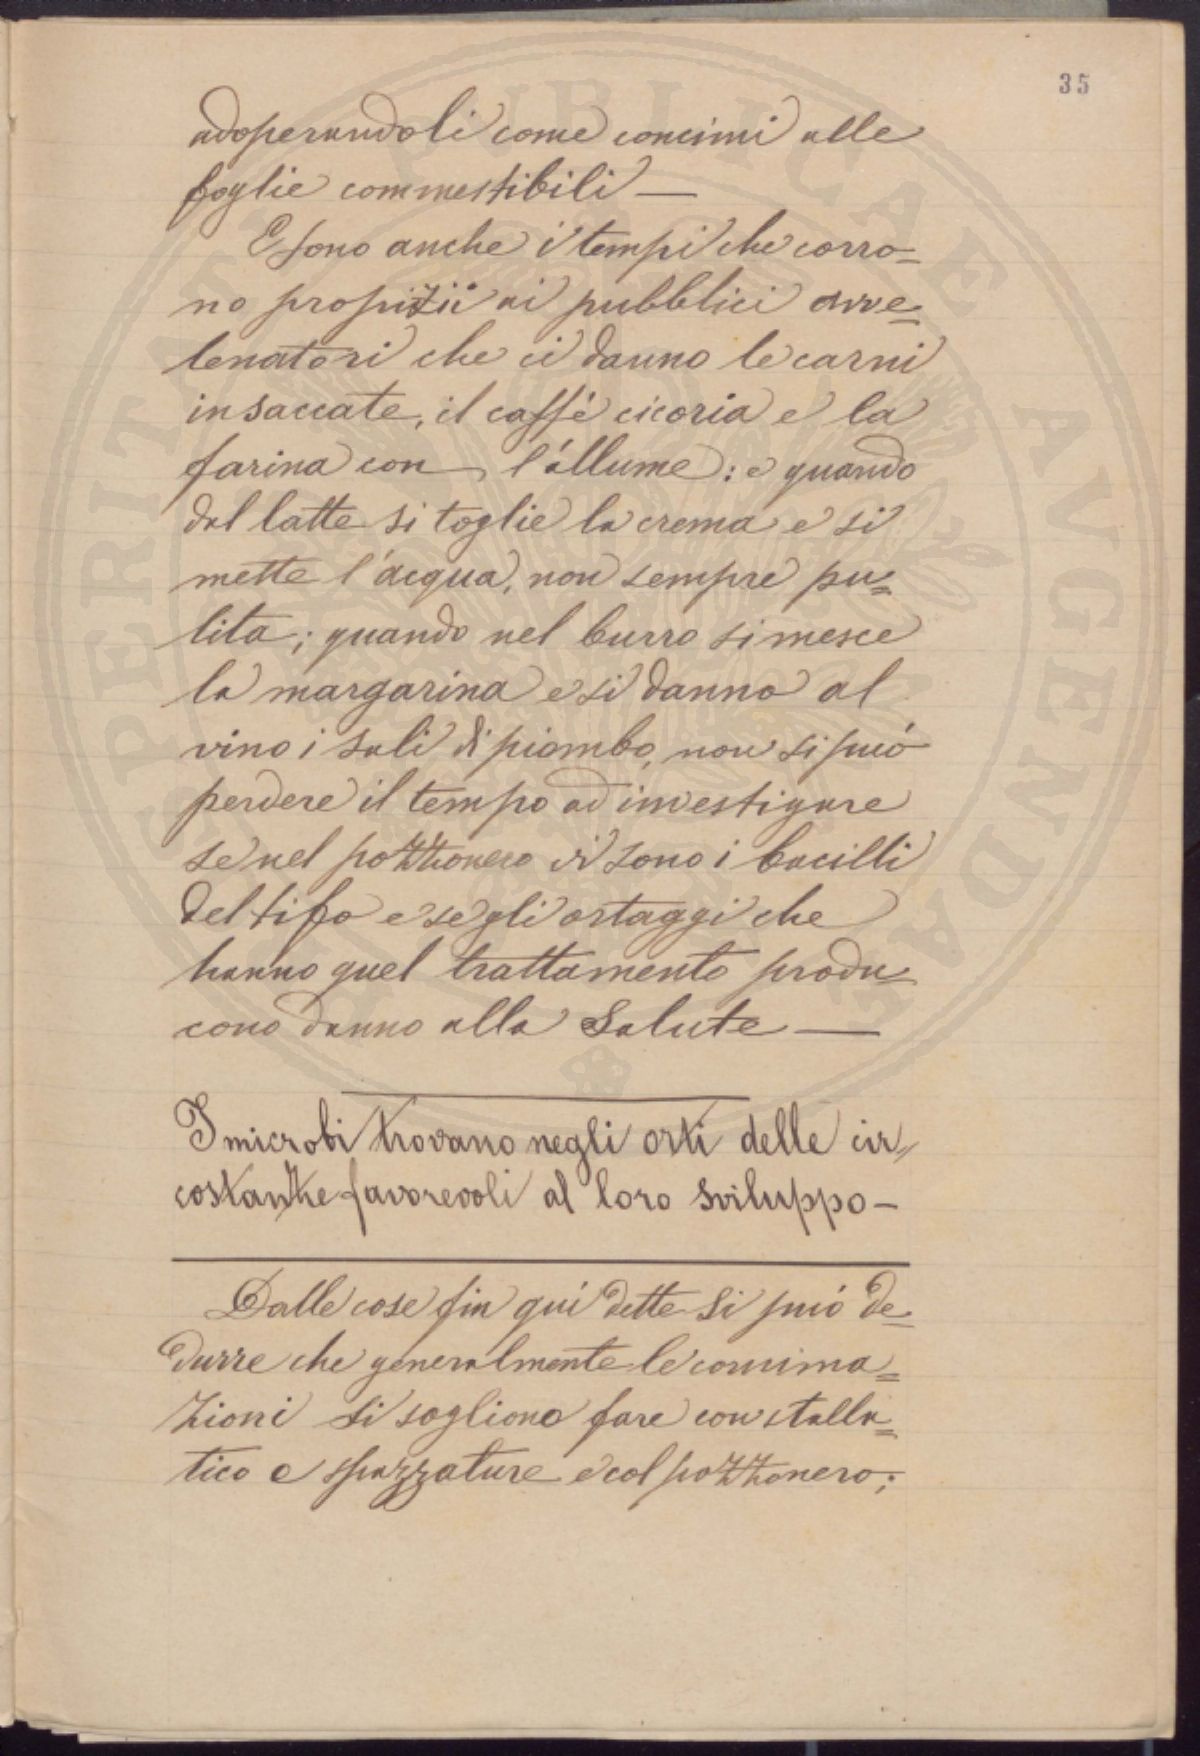 35
adoperandoli come concimi alle
foglie commestibili —
E sono anche i tempi che corro=
no propizii ai pubblici avve=
lenatori che ci danno le carni
insaccate, il caffé cicoria e la
farina con l'allume: e quando
dal latte si toglie la crema e si
mette l'acqua, non sempre pu=
lita; quando nel burro si mesce
la margarina e si danno al
vino i sali di piombo, non si puó
perdere il tempo ad investigare
se nel pozzonero vi sono i bacilli
del tifo e se gli ortaggi che
hanno quel trattamento produ=
cono danno alla Salute —
I microbi trovano negli orti delle cir=
costanze favorevoli al loro sviluppo —
Dalle cose fin quí dette si puó de=
durre che generalmente le concima=
zioni si sogliono fare con stalla=
tico e spazzature e col pozzonero;
PERITATI PUBLICAE AUGENDAE